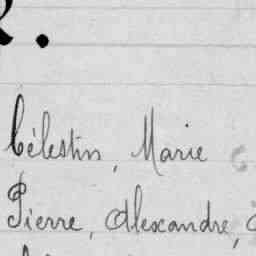 R.
Célestin, Marie
Pierre, Alexandre,